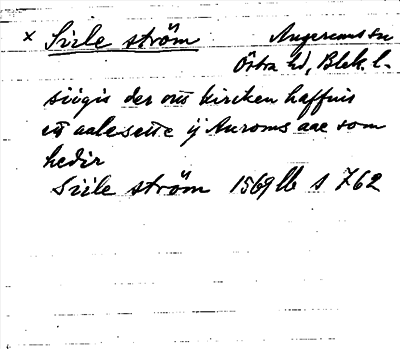 × Siile ström Angerums sn
Östra hd, Blek. l.
siigis der om kircken haffuis
itt aalesette ij Auroms aae som
hedir
Siile ström 1569 lb s 762